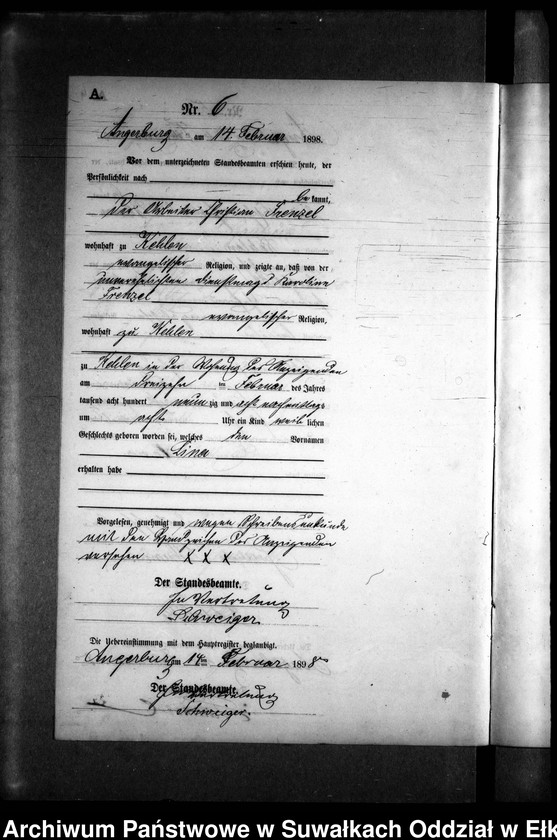 A.
Nr. 6
Angerburg am 14. Februar 1898.
Vor dem unterzeichneten Standesbeamten erschien heute, der
Persönlichkeit nach
bekannt,
der Arbeiter Christian Frenzel
wohnhaft zu Kehlen
evangelischer Religion, und zeigte an, daß von der
unverehelichten Dienstmagd Karoline
Frenzel
evangelischer Religion,
wohnhaft zu Kehlen
zu Kehlen in der Wohnung des Anzeigenden
am dreizehn ten Februar des Jahres
tausend acht hundert neunzig und acht nachmittags
um acht Uhr ein Kind weiblichen
Geschlechts geboren worden sei, welches den Vornamen
Lina
erhalten habe
Vorgelesen, genehmigt und wegen Schreibensunkunde
mit den Handzeichen des Anzeigenden
versehen X X X
Der Standesbeamte.
In Vertretung
Schweiger.
Die Uebereinstimmung mit dem Hauptregister beglaubigt.
Angerburg am 14ten Februar 1898
Der Standesbeamte.
In Vertretung
Schweiger.
Archiwum Państwowe w Suwałkach Oddział w Ełk